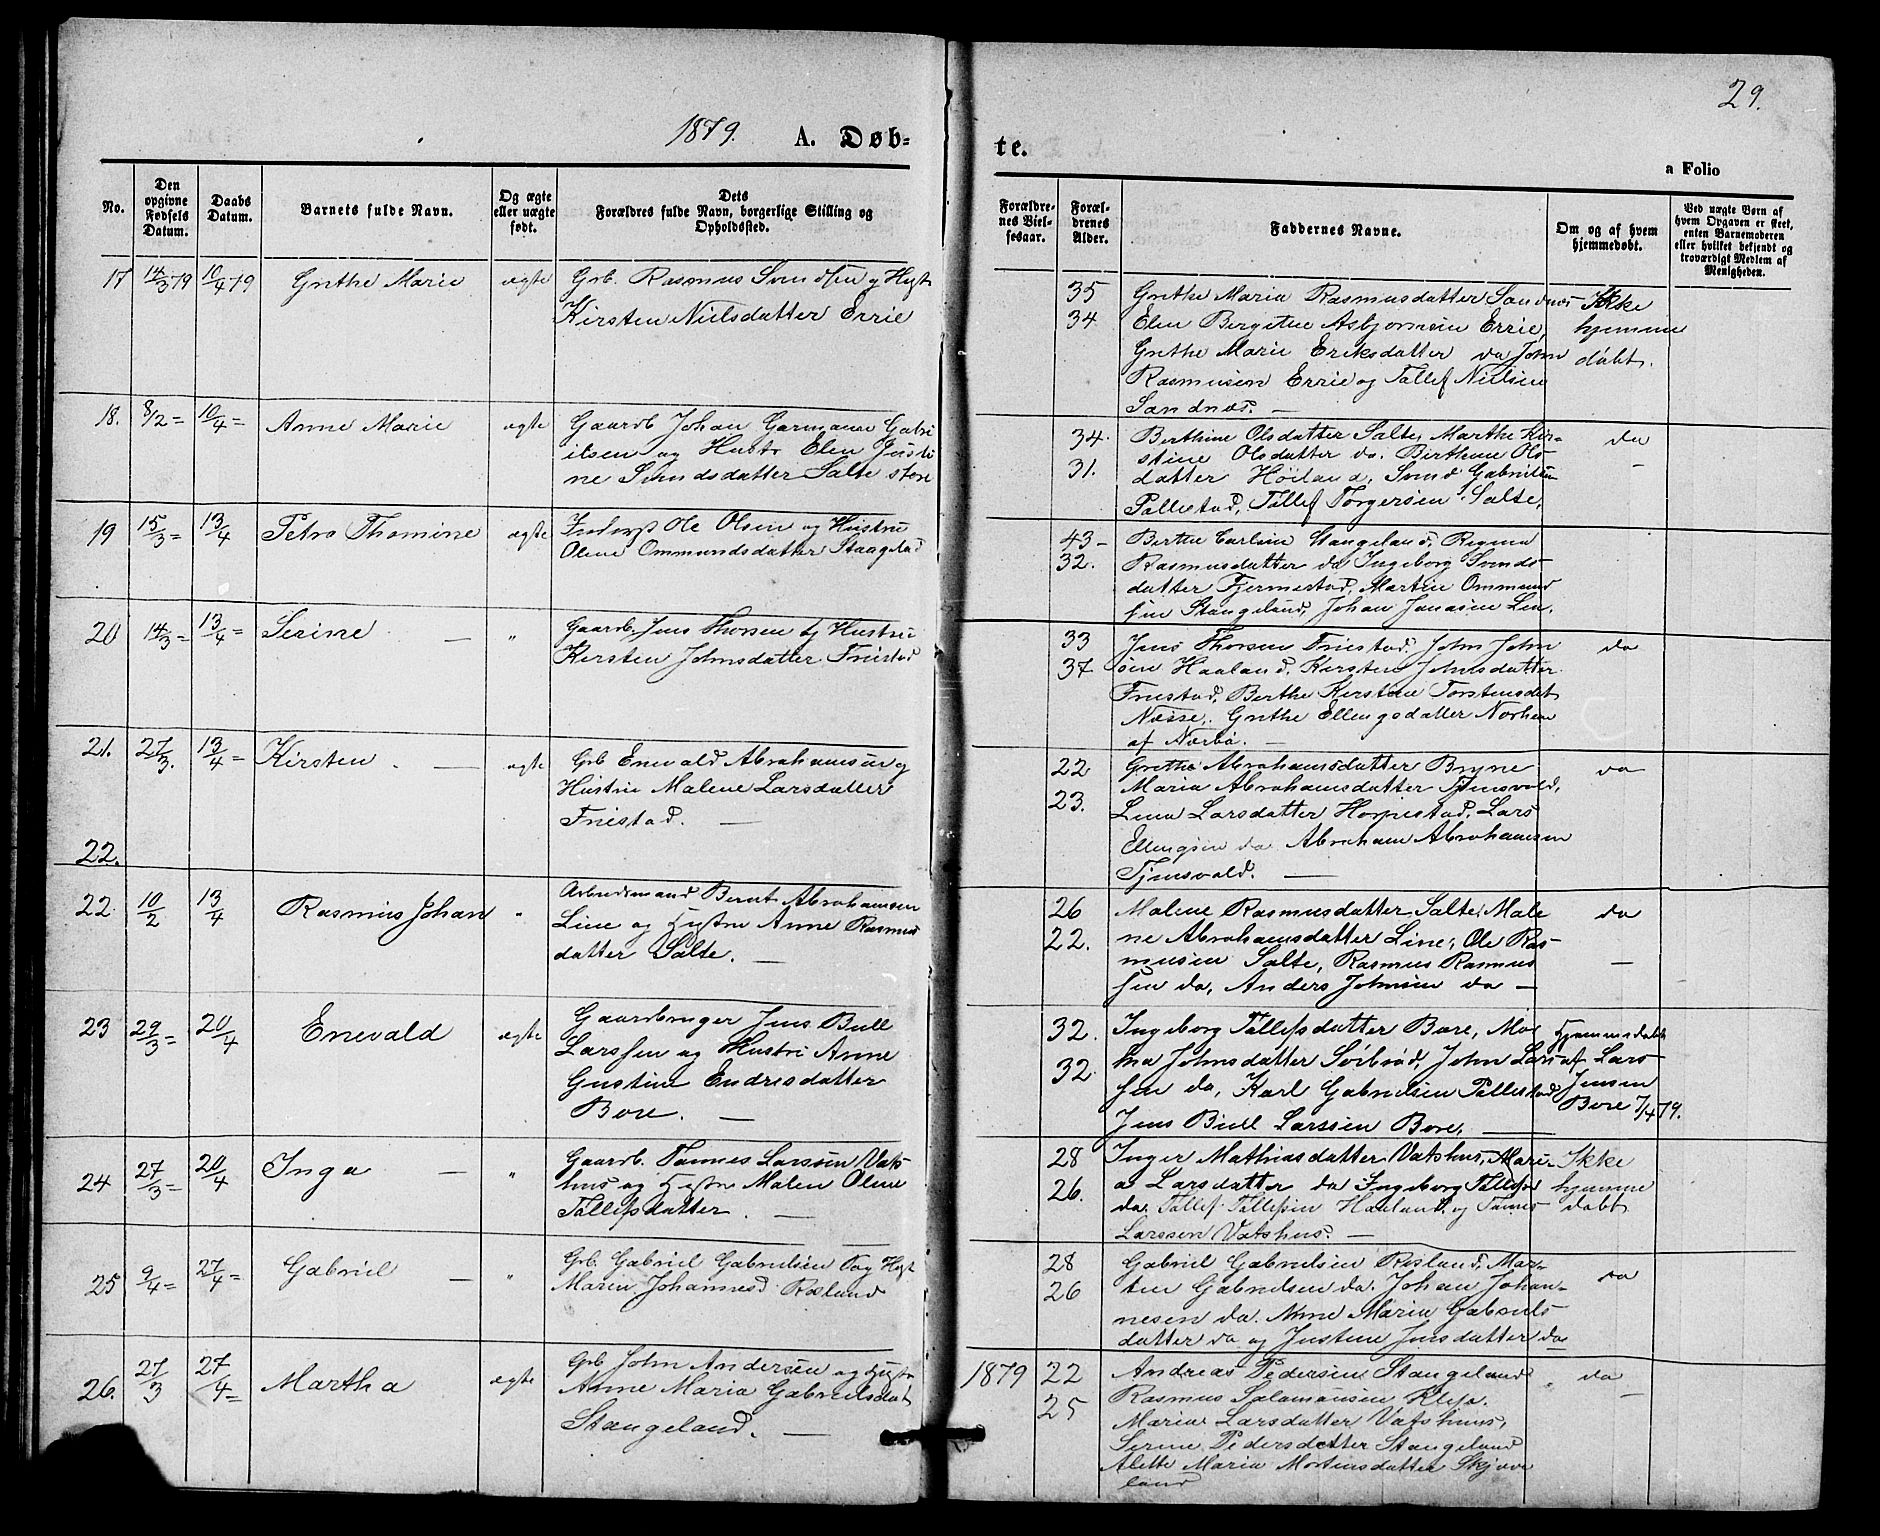 1879. A. Døb-
te.
29.
a Folio
No.
Den opgivne Fødsels Datum.
Daabs Datum.
Barnets fulde Navn.
Og ægte eller uægte født.
Dets Forældres fulde Navn, borgerlige Stilling og Opholdssted.
Forældrenes Vielsesaar.
Forældrenes Alder.
Faddernes Navne.
Om og af hvem hjemmedøbt.
Ved uægte Børn af hvem Opgaven er skeet, enten Barnemoderen eller hvilket bekjendt og troværdigt Medlem af Menigheden.
17 14/3 79 10/4 79 Grethe Marie ægte
Grb. Rasmus Svendsen og Hust
Kirsten Nielsdatter Errie
35
34
Grethe Maria Rasmusdatter Sandnes
Elen Bergitte Asbjørnsein Errie,
Grethe Marie Eriksdatter do John
Rasmusen Errie og Tallef Nielsen
Sandnæs. —
Ikke
hjemme
døbt.
18. 8/2 = 10/4 = Anne Marie ægte
Gaardb Johan Garmann Gabri
ilsen og Hustr Elen Justi
ne Svendsdatter Salte store
34.
31.
Berthine Olsdatter Salte, Marthe Kir-
stine Olsdatter do. Birthine Ols-
datter Høiland, Svend Gabrielsen
Pallestad, Tallef Torgersen Salte,
do
—
19 15/3 = 13/4 Petra Thomine ægte
Ole Olsen og Hustru
Olene Ommundsdatter Stangelad
43 -
32.
Berthe Carline Stangeland, Regine
Rasmusdatter do Ingeborg Svends-
datter Fjermestad, Martin Ommund
sen Stangeland, Johan Jonasen Lin.
20 14/3 = 13/4 = Serine — "
Gaardb. Jens Thorsen og Hustru
Kersten Johnsdatter Friestad
33
37
Jens Thorsen Friestad, John John
sen Haaland, Kersten Johnsdatter
Friestad, Berthe Kerstine Torstensdat
Næsse, Grethe Ellingsdatter Norhem
af Nærbø. —
do
21. 27/3. 13/4 = Kirsten. — ægte
Grb Enevald Abrahamsen og
Hustru Malene Larsdatter
Friestad. —
22
23.
Grethe Abrahamsdatter Bryne
Maria Abrahamsdatter Tjensvold,
Lina Larsdatter Horpestad, Lars
Ellingsen do Abraham Abrahamsen
Tjensvold. —
do
22.
22 10/2 13/4 Rasmus Johan "
Arbeidsmand Bernt Abrahamsen
Line og Hustru Anne Rasmus
datter Salte. —
26
22.
Malene Rasmusdatter Salte, Male
ne Abrahamsdatter Line, Ole Ras-
musen Salte, Rasmus Rasmus
sen do, Anders Johnsen do —
do
—
23 29/3 = 20/4 Enevald ægte
Gaardbruger Jens Bull
Larssen og Hustru Anne
Gustine Endresdatter
Bore. —
32.
32.
Ingeborg Tallefsdatter Bore, Mal
ena Johnsdatter Sørbrød, John Lars-
sen do, Karl Gabrielsen Pallestad
Jens Bull Larssen Bore, —
Hjemmedøbt
af Lars
Jensen
Bore 7/4 79.
24 27/3 = 20/4 Inga — "
Gaardb. Tønnes Larssen Vats-
hus og Hustru Malen Olene
Tallefsdatter. —
28
26.
Inger Mathiasdatter Vatshus, Mari-
a Larsdatter do Ingeborg Tallefsd
do. Tallef Tallefsen Haaland, og Tønnes
Larssen Vatshus. —
Ikke
hjemme
døbt
25 9/4 = 27/4 = Gabriel — "
Grb. Gabriel Gabrielsen og Hust
Maren Johannesd Risland
28
26
Gabriel Gabrielsen Risland, Mar-
tin Gabrielsen do. Johan Johan-
nesen do. Anne Maria Gabriels-
datter do og Justine Jensdatter do
do
26. 27/3 27/4 = Martha ægte
Grb John Andersen og Hustru
Anne Maria Gabrielsdat
Stangeland. —
1879
22
25
Andreas Pedersen Stangeland
Rasmus Salamonsen Klep.
Maria Larsdatter Vatshuus,
Serine Pedersdatter Stangeland
Alette Maria Mortensdatter Skjæve
land
do
—